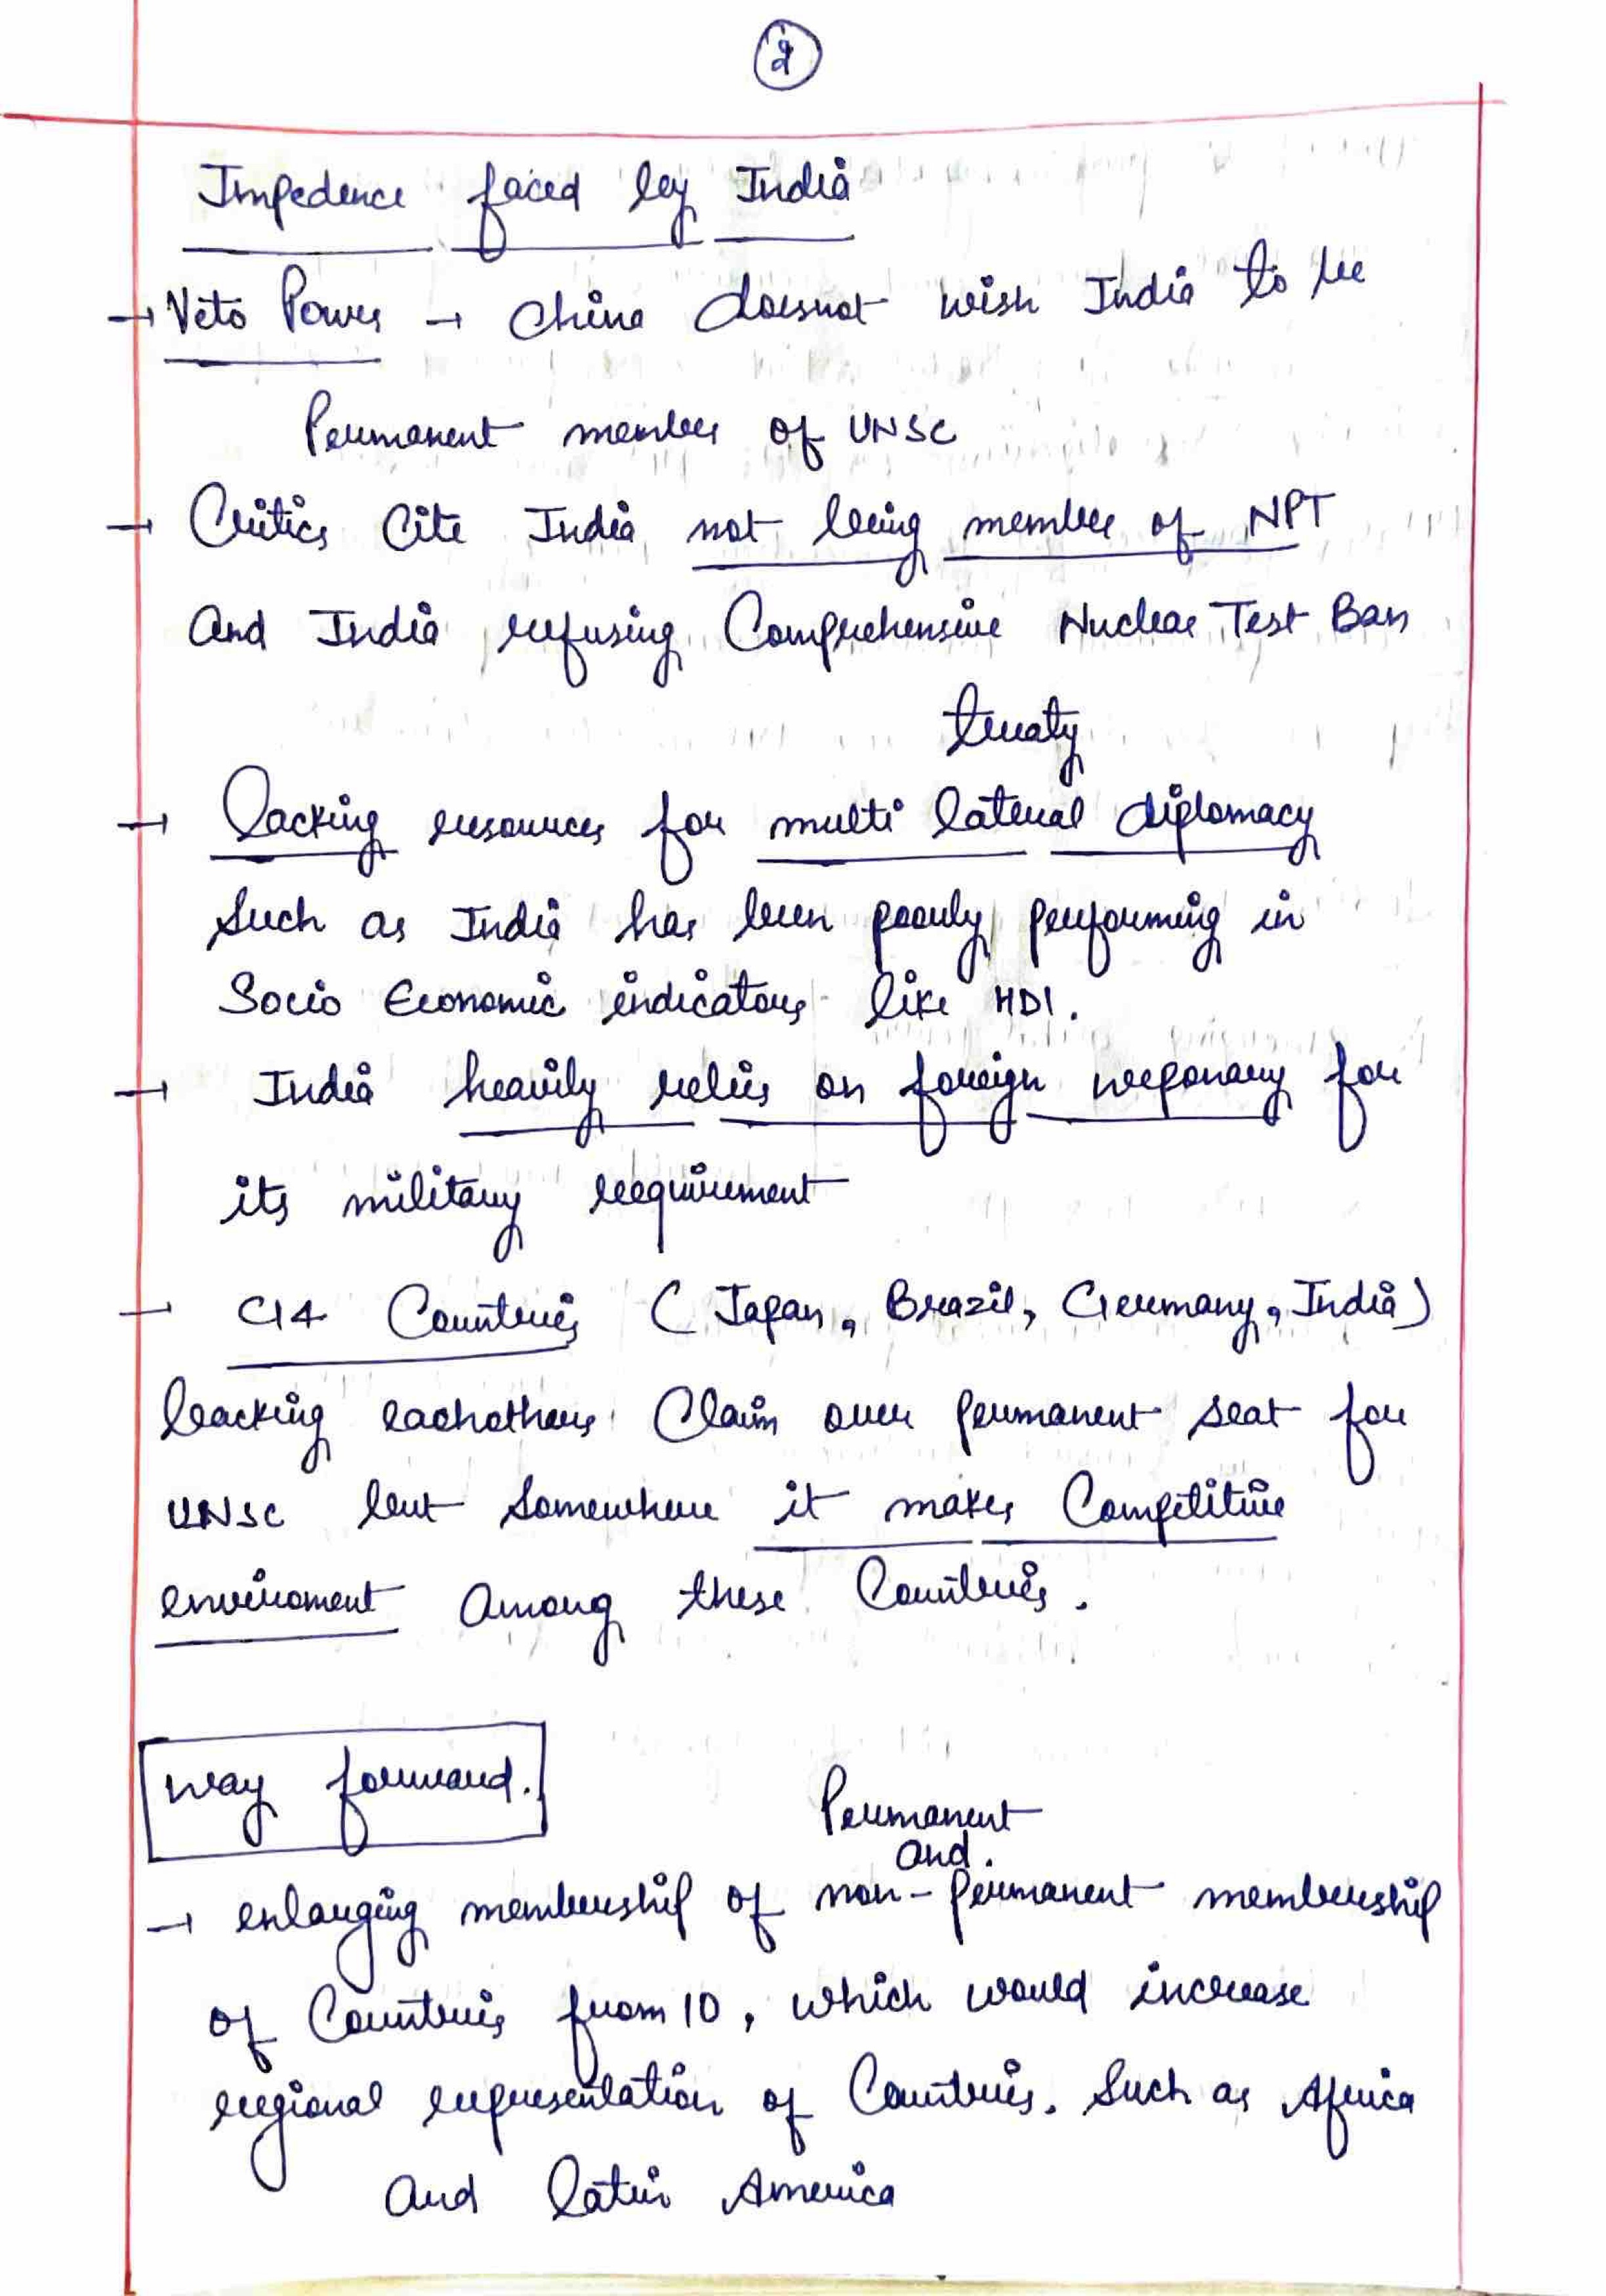 2
Impedence faced by India
→ Veto Power → China doesnot wish India to be
Permanent member of UNSC
→ Critics Cite India not being member of NPT
And India refusing Comprehensive Nuclear Test Ban
treaty
→ lacking resources for multi lateral diplomacy
Such as India has been poorly performing in
Socio Economic indicators like HDI.
→ India heavily relies on foreign weponary for
its military reequirement
→ G4 Countries (Japan, Brazil, Germany, India)
backing eachothers Claim over permanent seat for
UNSC but Somewhere it makes Competitive
enviroment Among these Countries.
Way forward.
Permanent
and.
→ enlarging membership of non-permanent membership
of Countries from 10, which would increase
regional representation of Countries. Such as Africa
And Latin America